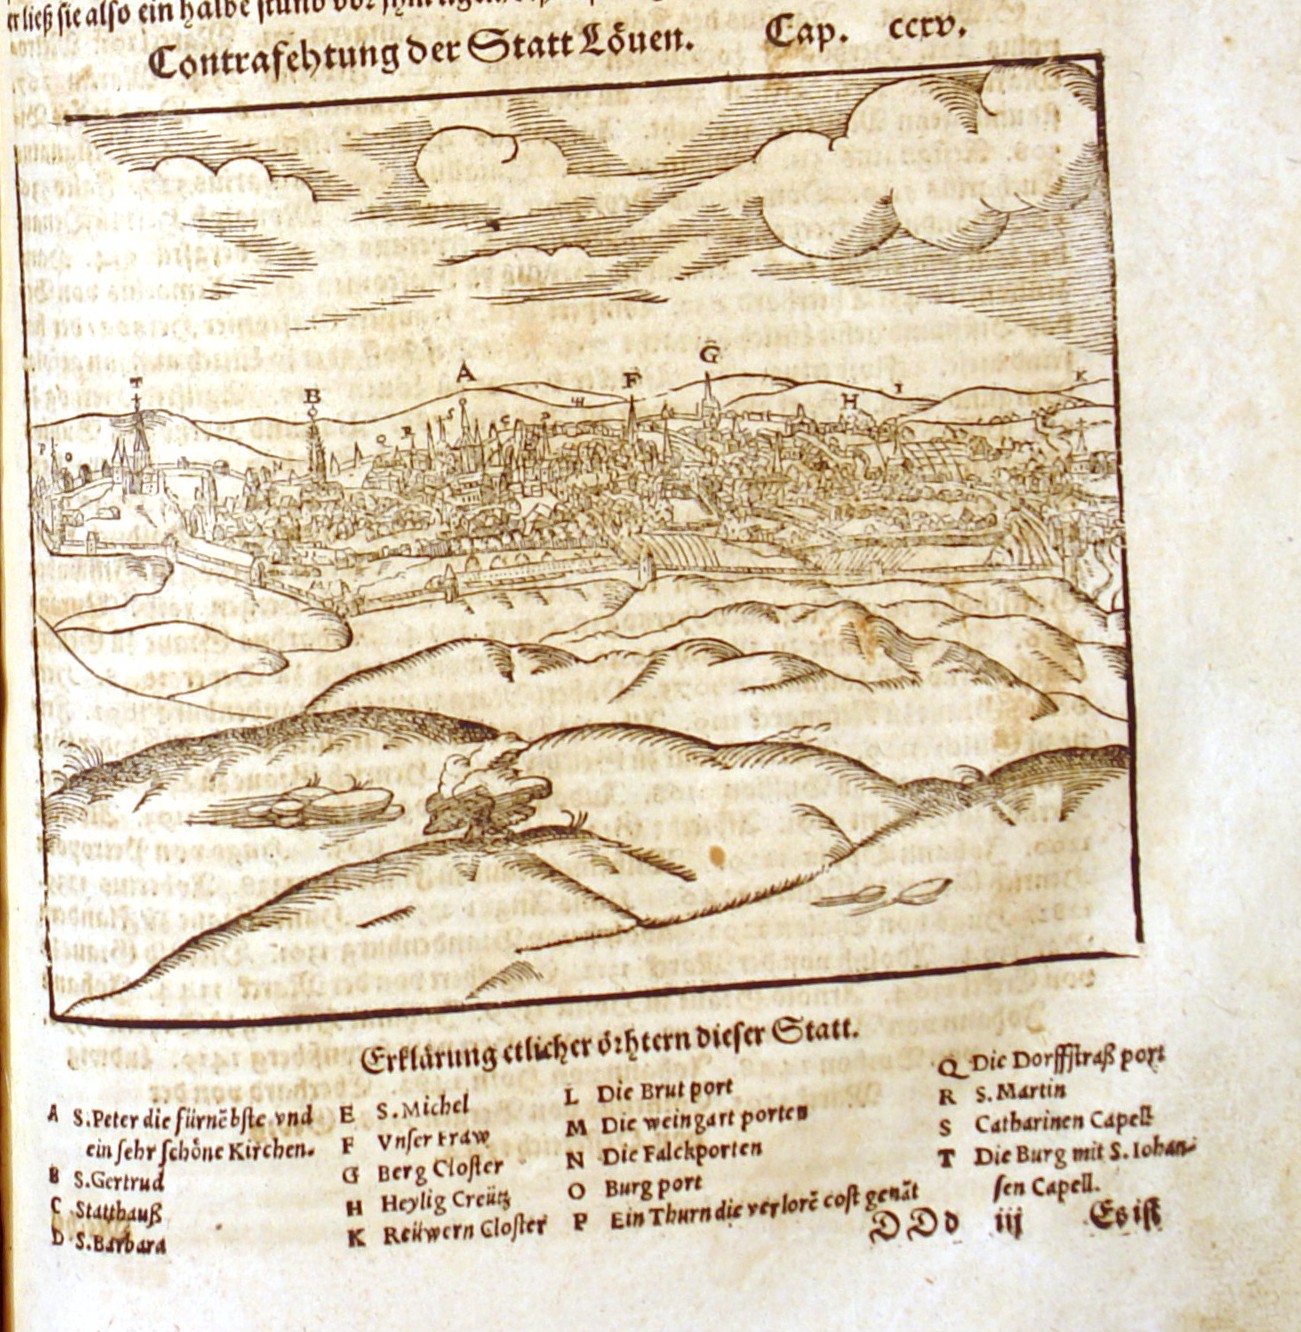 er ließ sie also ein halbe stund vor
Contrafehtung der Statt Löuen. Cap. ccxv.
T B A F G H I K
P O N Q R S C D M
Erklärung etlicher örhtern dieser Statt.
A S. Peter die fürnēbste vnd
ein sehr schöne Kirchen.
B S. Gertrud
C Statthauß
D S. Barbara
E S. Michel
F Vnser Fraw
G Berg Closter
H Heylig Creütz
K Reüwern Closter
L Die Brut port
M Die weingart porten
N Die Falckporten
O Burg port
P Ein Thurn die verlorē cost genāt
Q Die Dorffstraß port
R S. Martin
S Catharinen Capell
T Die Burg mit S. Iohan-
sen Capell.
DDd iij Es ist